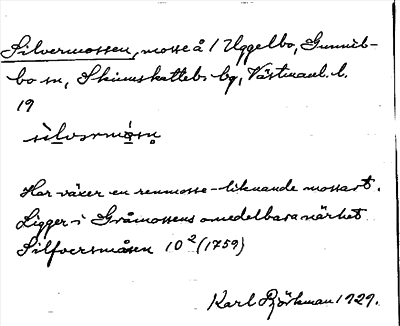 Silvermossen, mosse å 1 Uggelbo, Gunnil-
bo sn, Skinnskattebs bg, Västmanl. l.
19
silvərmòsn̥
Har växer en renmosse-liknande mossart.
Ligger i Gråmossens omedelbara närhet
Silfversmåsen 10² (1759)
Karl Björkman 1929.